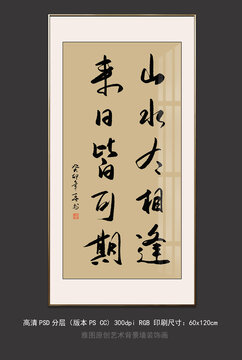 山水又相逢
来日皆可期
癸卯年 书
高清PSD分层（版本PS CC）300dpi RGB 印刷尺寸：60x120cm
雅图原创艺术背景墙装饰画